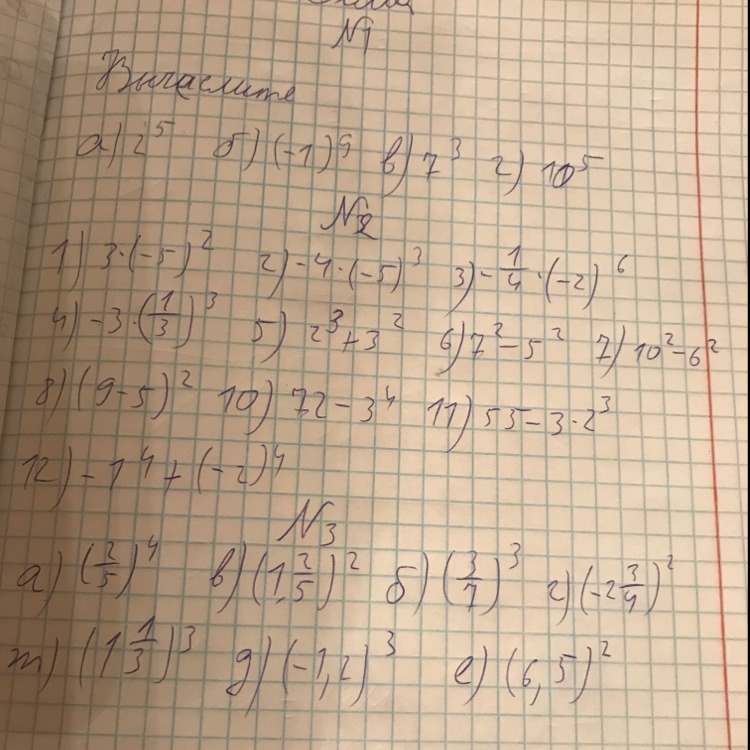 N1
Вычислите
а) 2⁵ б) (-1)⁹ в) 7³ г) 10⁵
N2
1) 3·(-5)² 2) -4·(-5)³ 3) -1/4·(-2)⁶
4) -3·(1/3)³ 5) 2³+3² 6) 7²-5² 7) 10²-6²
8) (9-5)² 10) 72-3⁴ 11) 55-3·2³
12) -1⁴+(-2)⁴
N3
а) (2/5)⁴ в) (1 2/5)² б) (3/7)³ г) (-2 3/4)²
т) (1 1/3)³ д) (-1,2)³ е) (6,5)²